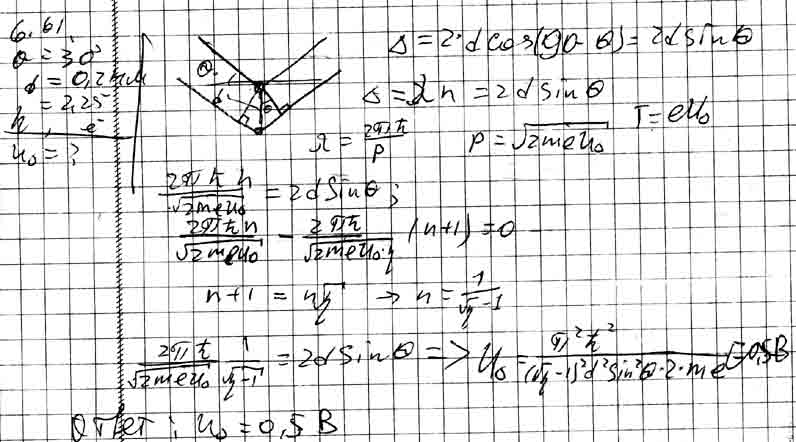 6.61
θ = 30°
d = 0,2 нм
η = 2,25
e⁻
U₀ = ?
Δ = 2·d cos(90-θ) = 2d sinθ
Δ = λn = 2d sinθ
λ = 2πħ/p  p = √(2meU₀)  T = eU₀
2πħn/√(2meU₀) = 2d sinθ;
2πħn/√(2meU₀) - 2πħ/√(2meU₀·η) (n+1) = 0
n+1 = n√η → n = 1/(√η-1)
2πħ/√(2meU₀) 1/(√η-1) = 2d sinθ => U₀ = π²ħ²/((√η-1)²d²sin²θ·2·me) = 0,5 В
Ответ: U₀ = 0,5 В